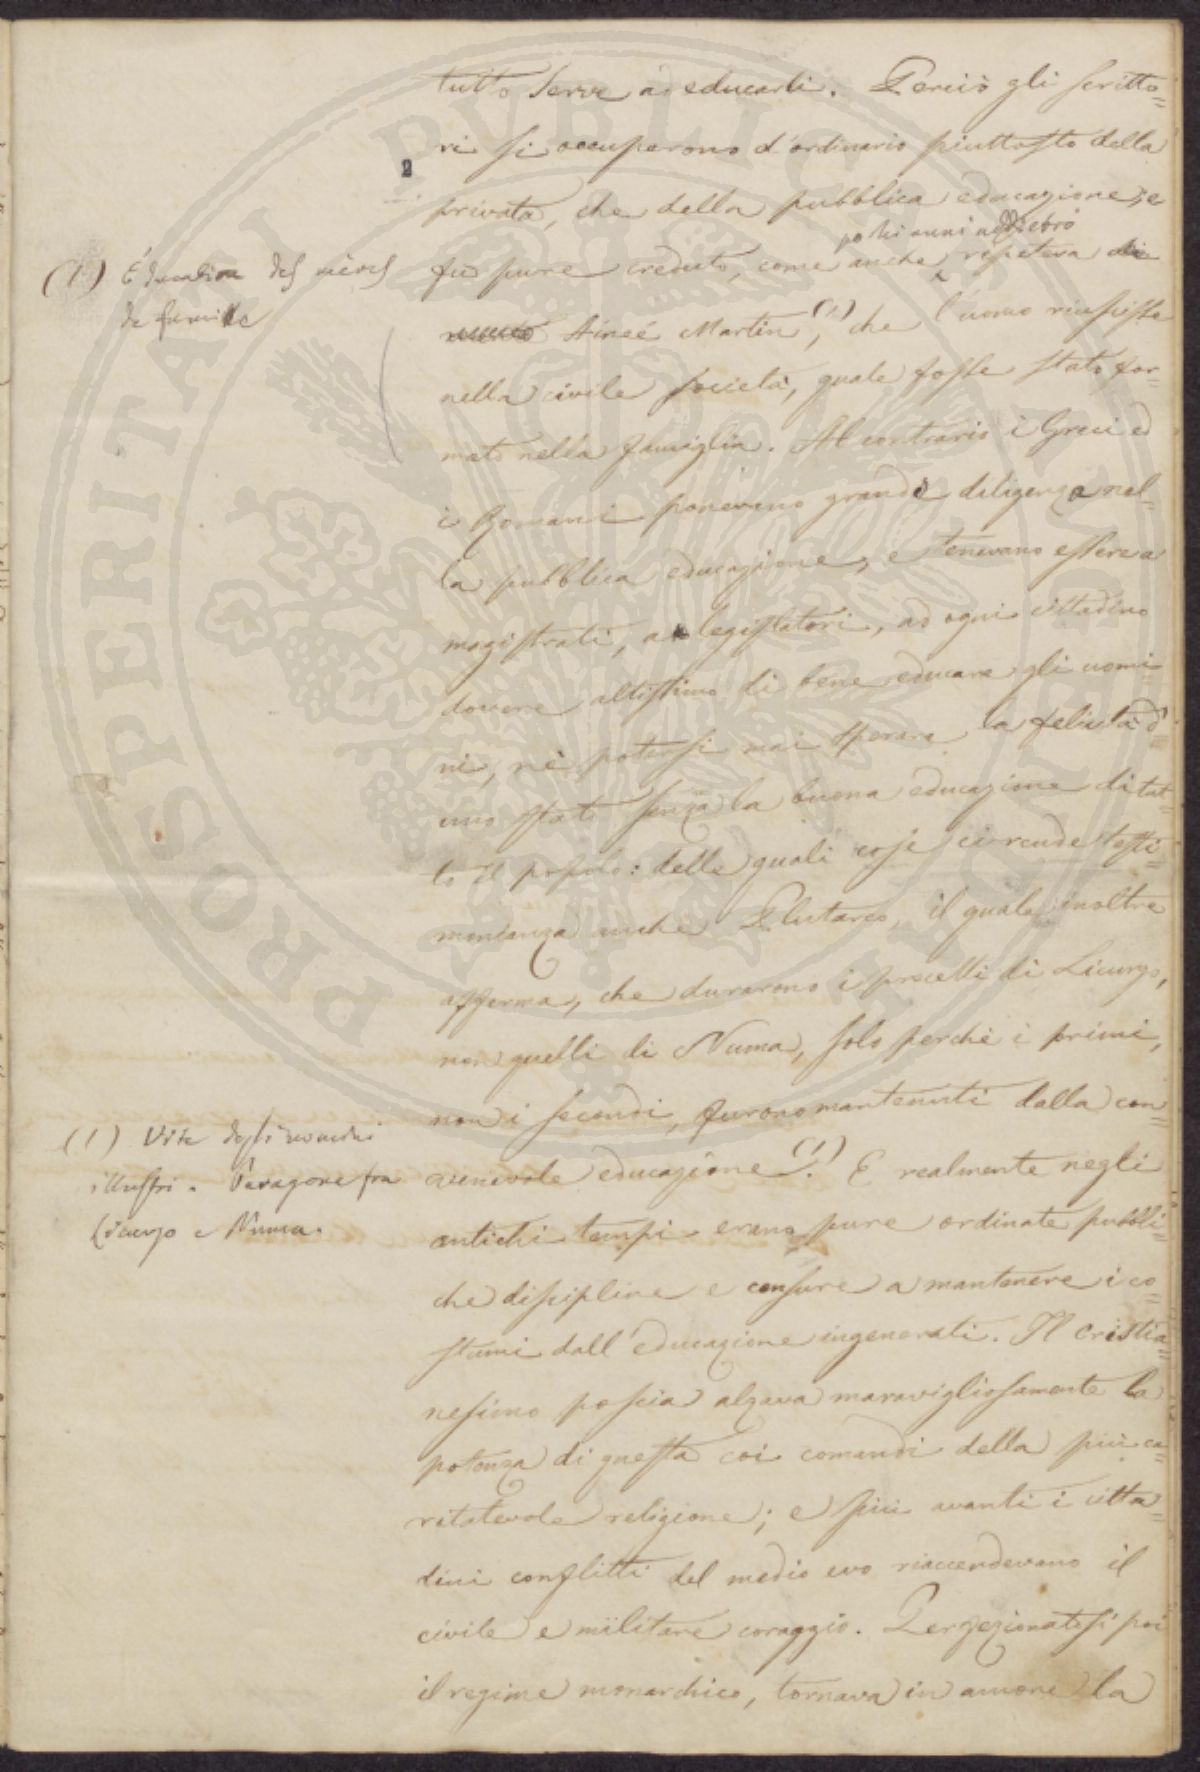 tutto serve ad educarli. Perciò gli scritto=
ri si occuperono d'ordinario piuttosto della
2
privata, che della pubblica educazione; e
pochi anni addietro
fu pure creduto, come anche ripeteva
Aimeé Martin (1), che l'uomo riuscisse
(1) Éducation des mères
de famille
nella civile società, quale fosse stato for=
mato nella famiglia. Al contrario i Greci ed
i Romani ponevano grande diligenza nel=
la pubblica educazione, e tenevano essere a
magistrati, a legislatori, ad ogni cittadino
dovere altissimo di bene educare gli uomi=
ni, nè potersi mai sperare la felicità d'
uno stato senza la buona educazione di tut=
to il popolo: delle quali cose ci rende testi=
monianza anche Plutarco, il quale inoltre
afferma, che durarono i precetti di Licurgo,
non quelli di Numa, solo perchè i primi,
non i secondi, furono mantenuti dalla con=
venevole educazione (1). E realmente negli
(1) Vite degli uomini
illustri. Paragone fra
Licurgo e Numa.
antichi tempi erano pure ordinate pubbli=
che discipline e censure a mantenere i co=
stumi dall'educazione ingenerati. Il cristia=
nesimo poscia alzava maravigliosamente la
potenza di questa coi comandi della più ca=
ritatevole religione; e più avanti i citta=
dini conflitti del medio evo riaccendevano il
civile e militare coraggio. Perfezionatosi poi
il regime monarchico, tornava in amore la
PROSPERITATI PUBLICAE